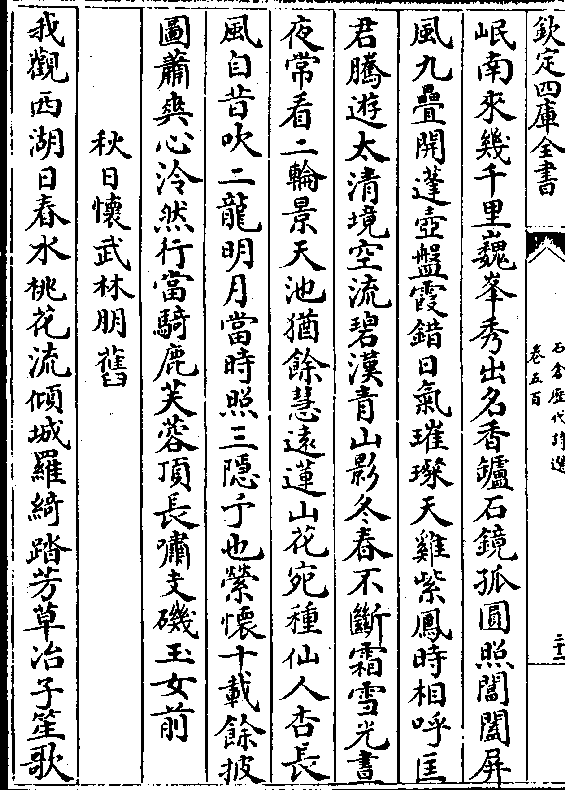 欽定四庫全書
石倉歷代詩選
卷五百
二十二
岷南來幾千里巍峯秀出名香鑪石鏡孤圓照閶闔屏
風九疊開蓬壺盤霞錯日氣璀璨天雞紫鳳時相呼匡
君騰遊太清境空流碧漢青山影冬春不斷霜雪光晝
夜常看二輪景天池猶餘慧遠蓮山花宛種仙人杏長
風自昔吹二龍明月當時照三隠予也縈懐十載餘披
圖蕭爽心泠然行當騎鹿芙蓉頂長嘯支磯玉女前
秋日懐武林朋舊
我觀西湖日春水桃花流傾城羅綺踏芳草冶子笙歌